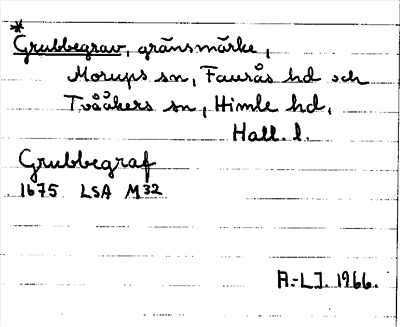 *
Grubbegrav, gränsmärke,
Morups sn, Faurås hd och
Tvååkers sn, Himle hd,
Hall. l.
Grubbegraf
1675 LSA M32
A.-L.J. 1966.